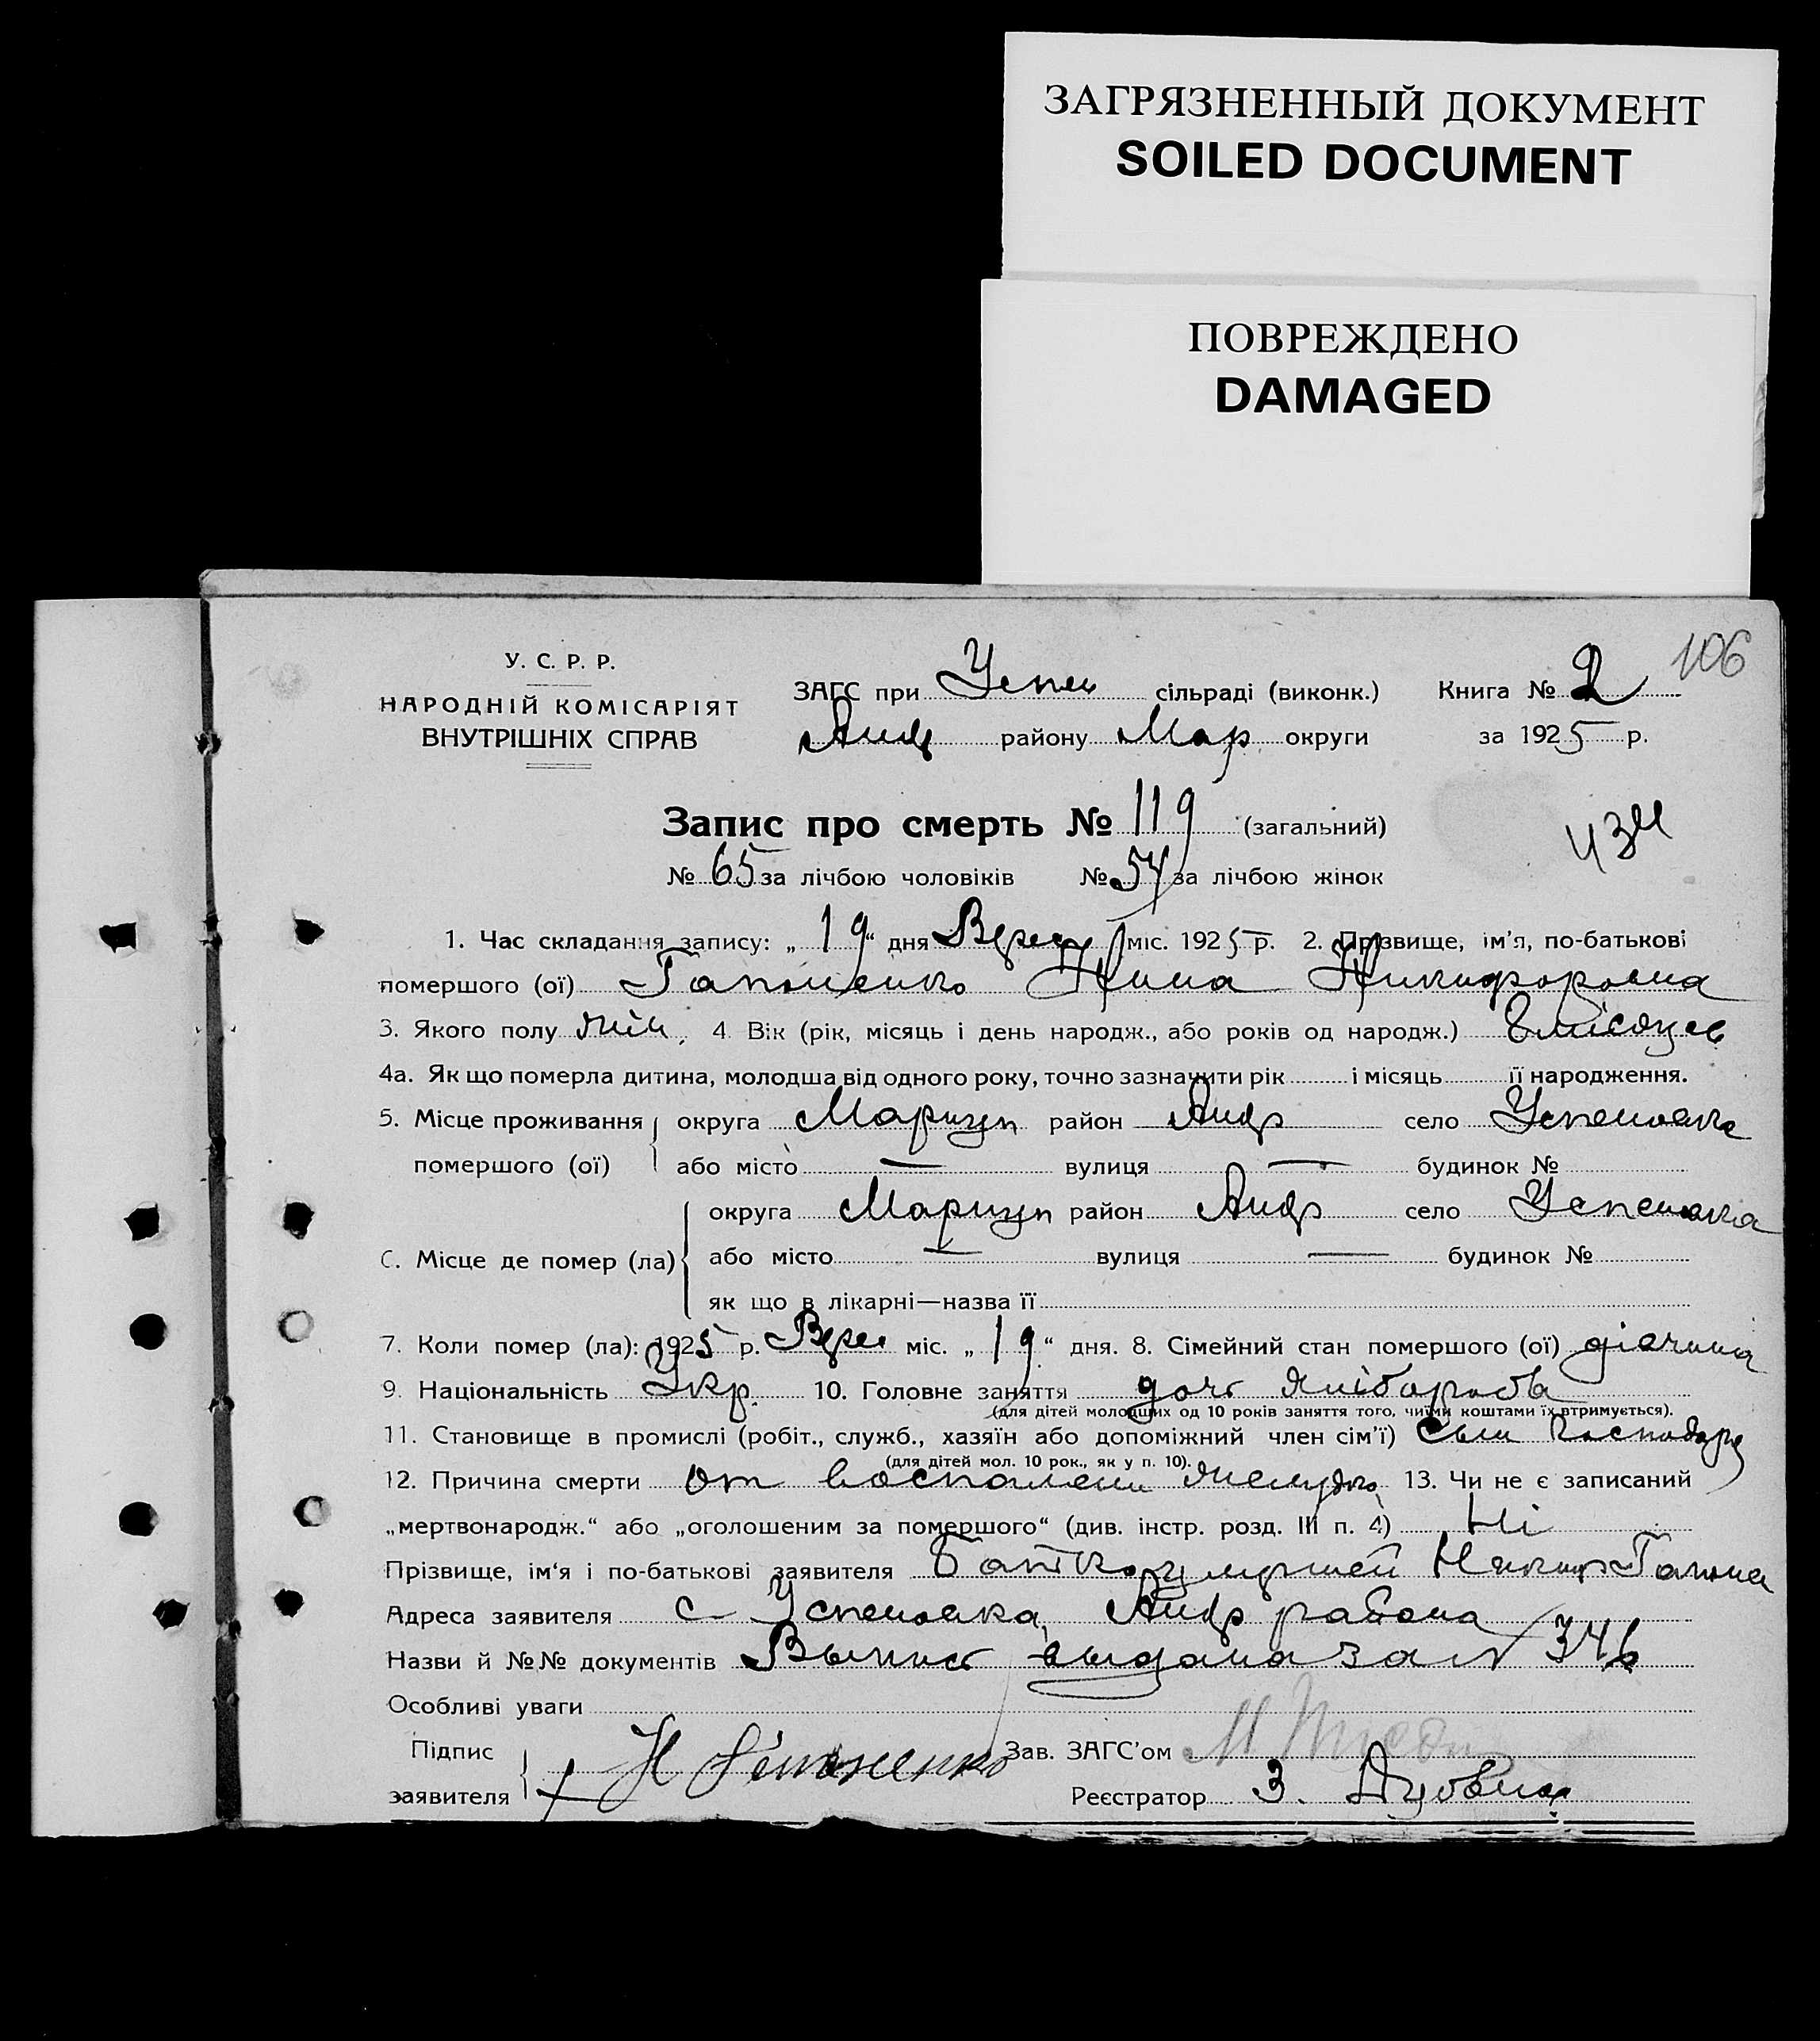 ЗАГРЯЗНЕННЫЙ ДОКУМЕНТ
SOILED DOCUMENT
ПОВРЕЖДЕНО
DAMAGED
106
У. С. Р. Р.
НАРОДНІЙ КОМІСАРІЯТ
ВНУТРІШНІХ СПРАВ
ЗАГС при Успен сільраді (виконк.) Книга № 2
Андр району Мар округи за 1925 р.
Запис про смерть № 119 (загальний)
№ 65 за лічбою чоловіків № 54 за лічбою жінок
1. Час складання запису: „ 19 “ дня Верес міс. 1925 р. 2. Прізвище, ім'я, по-батькові
помершого (ої) Гапоненко Нина Никифоровна
3. Якого полу жін. 4. Вік (рік, місяць і день народж., або років од народж.) 8 місяцев
4а. Як що померла дитина, молодша від одного року, точно зазначити рік і місяць її народження.
5. Місце проживання округа Маріуп район Андр село Успеновка
помершого (ої) або місто — вулиця — будинок №
округа Маріуп район Андр село Успеновка
6. Місце де помер (ла) або місто — вулиця — будинок №
як що в лікарні—назва її
7. Коли помер (ла): 1925 р. Верес міс. „ 19 “ дня. 8. Сімейний стан помершого (ої) дівчина
9. Національність Укр. 10. Головне заняття дочь хлібороба
(для дітей молодших од 10 років заняття того, чиїми коштами їх втримується).
11. Становище в промислі (робіт., служб., хазяїн або допоміжний член сім'ї) господаря
(для дітей мол. 10 рок., як у п. 10).
12. Причина смерти от воспалени желудка 13. Чи не є записаний
„мертвонародж.“ або „оголошеним за помершого“ (див. інстр. розд. III п. 4) Ні
Прізвище, ім'я і по-батькові заявителя Батько умершей Никиф Гапона
Адреса заявителя с Успеновка Андр района
Назви й №№ документів Выпись выдана за № 346
Особливі уваги
Підпис
заявителя Н Гапоненко Зав. ЗАГС'ом
Реєстратор З.